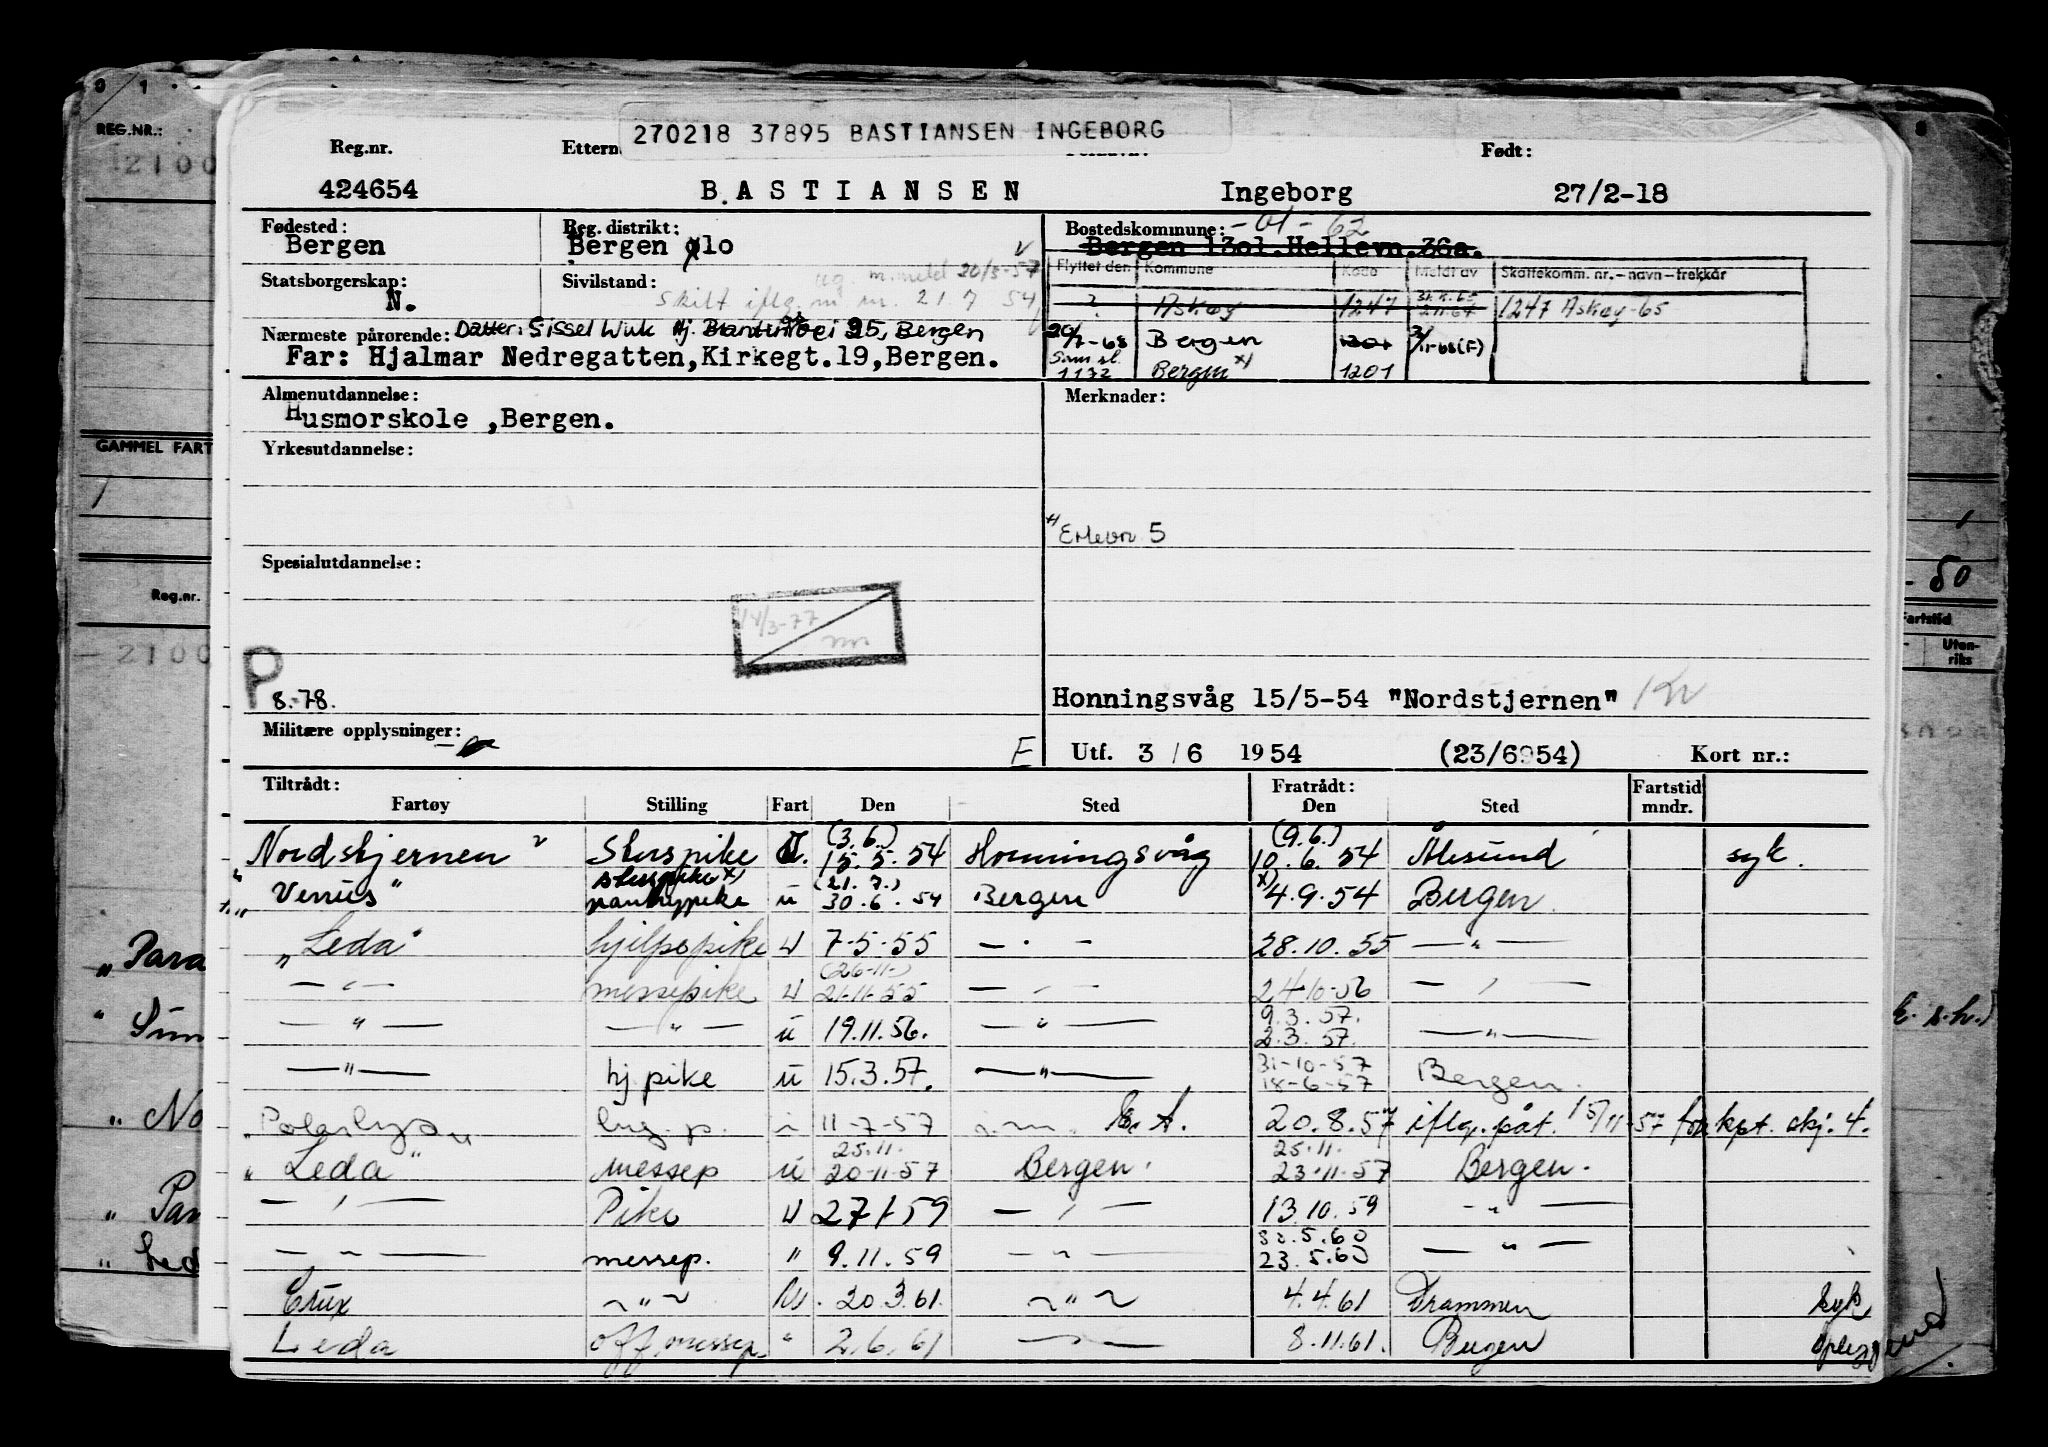 270218 37895 BASTIANSEN INGEBORG
Reg.nr. Ettern Født:
424654 B.ASTIANSEN Ingeborg 27/2-18
Fødested: Reg. distrikt: Bostedskommune: -01-62
Bergen Bergen 010 Bergen 1301.Hellevn.36a.
Statsborgerskap: Sivilstand: Flyttet den Kommune Kode Meldt av Skattekomm. nr.-navn-trekkår
N. skilt iflg. m 21.7 54 ? Askøy 1247 1247 Askøy-65
Nærmeste pårørende: Datter: Sissel Wiik 25, Bergen Bergen 1201 (F)
Far: Hjalmar Nedregatten,Kirkegt.19,Bergen. 1172 Bergen x) 1201
Almenutdannelse: Merknader:
Husmorskole ,Bergen.
Yrkesutdannelse:
x) Erlevn 5
Spesialutdannelse:
14/3-77
P
8-78. Honningsvåg 15/5-54 "Nordstjernen"
Militære opplysninger:
E Utf. 3/6 1954 (23/6954) Kort nr.:
Tiltrådt: Fratrådt: Fartstid
Fartøy Stilling Fart Den Sted Den Sted mndr.
(3.6.) (9.6.)
Nordstjernen" 15.5.54 Honningsvåg 10.6.54 Ålesund syk.
x) (21.7.) x)
"Venus" pantrypike u 30.6.54 Bergen 4.9.54 Bergen
"Leda" hjelpepike U 7-5-55 — " — 28.10.55 — " —
(26-11-)
— " — messepike U 21.11.55 — " — 24.10-56 — " —
9.3.57.
— " — — " — u 19.11.56. — " — 2.3.57. — " —
31-10-57
— " — hj pike u 15.3.57. — " — 18-6-57 Bergen.
11-7-57 20.8.57 iflg. påt. 15/11-57 kpt. skj. 4.
25.11. 25.11.
"Leda" messep u 20-11-57 Bergen. 23-11-57 Bergen.
— " — Pike U 27/1 59 — " — 13.10.59 — " —
— " — messep. " 9.11.59 — " — 23.5.60 — " —
Crux — " — 20.3.61. — " — 4.4.61 Drammen syk
Leda off.messep. " 2.6.61 — " — 8.11.61. Bergen
REG.NR.:
2100
GAMMEL FART
Reg.nr.
2100
50
Fartstid
Uten-
riks